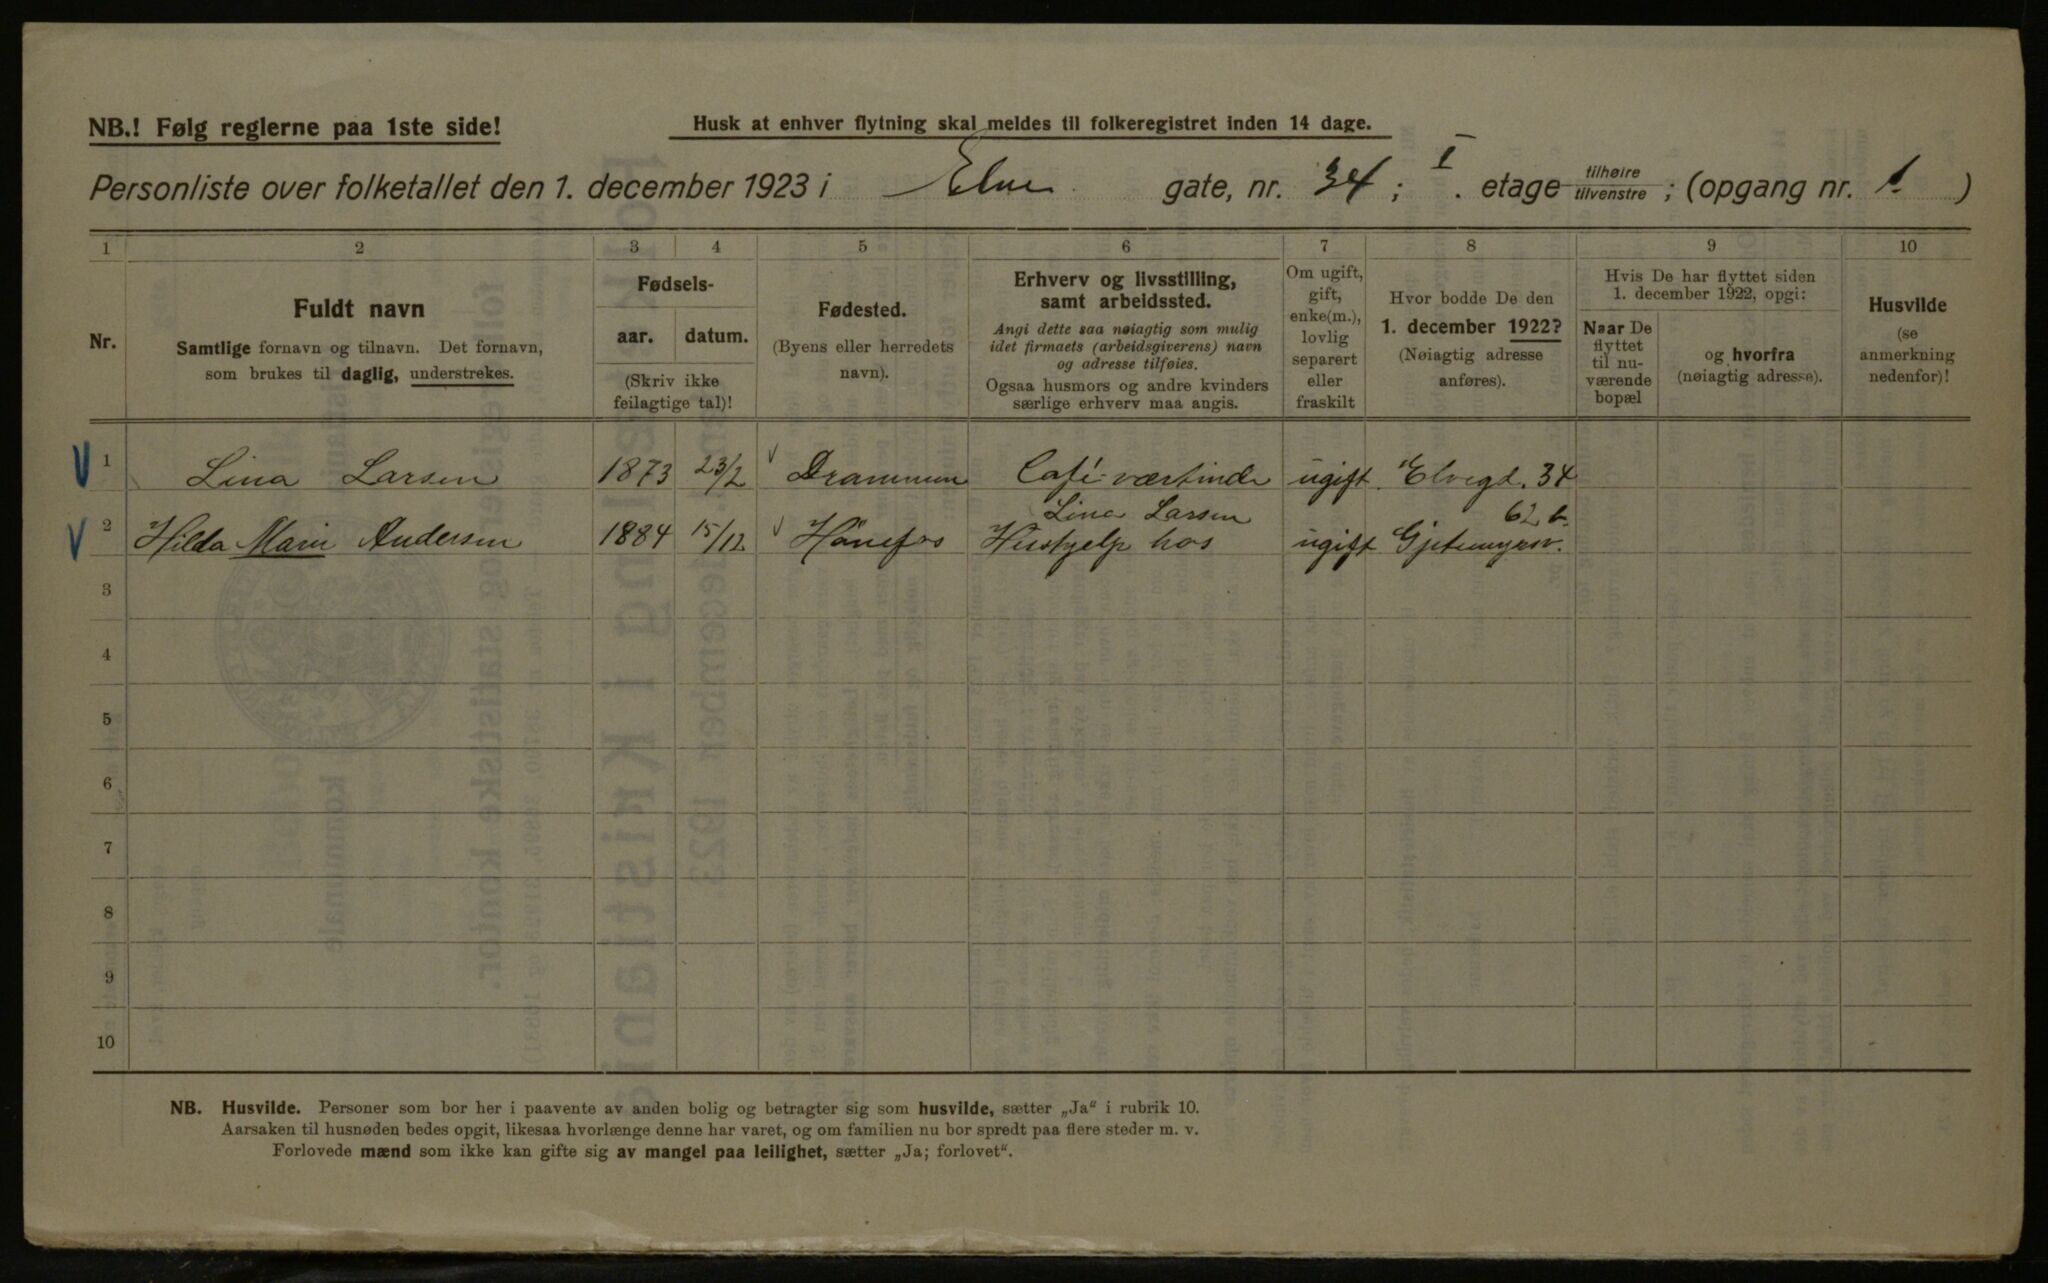 NB.! Følg reglerne paa 1ste side!
Husk at enhver flytning skal meldes til folkeregistret inden 14 dage.
Personliste over folketallet den 1. december 1923 i Elve gate, nr. 34; I. etage tilhøire/tilvenstre; (opgang nr. 1)
1 2 3 4 5 6 7 8 9 10
Nr.
Fuldt navn
Samtlige fornavn og tilnavn. Det fornavn,
som brukes til daglig, understrekes.
Fødsels-
aar. datum.
(Skriv ikke
feilagtige tal)!
Fødested.
(Byens eller herredets
navn).
Erhverv og livsstilling,
samt arbeidssted.
Angi dette saa nøiagtig som mulig
idet firmaets (arbeidsgiverens) navn
og adresse tilføies.
Ogsaa husmors og andre kvinders
særlige erhverv maa angis.
Om ugift,
gift,
enke(m.),
lovlig
separert
eller
fraskilt
Hvor bodde De den
1. december 1922?
(Nøiagtig adresse
anføres).
Hvis De har flyttet siden
1. december 1922, opgi:
Naar De
flyttet
til nu-
værende
bopæl
og hvorfra
(nøiagtig adresse).
Husvilde
(se
anmerkning
nedenfor)!
1 Lina Larsen 1873 23/2 Drammen Café-værtinde ugift Elvegd. 34
Lina Larsen 62 b
2 Hilda Marie Andersen 1884 15/12 Hönefos Hushjelp hos ugift Gjetemyrsv.
3
4
5
6
7
8
9
10
NB. Husvilde. Personer som bor her i paavente av anden bolig og betragter sig som husvilde, sætter „Ja“ i rubrik 10.
Aarsaken til husnøden bedes opgit, likesaa hvorlænge denne har varet, og om familien nu bor spredt paa flere steder m. v.
Forlovede mænd som ikke kan gifte sig av mangel paa leilighet, sætter „Ja; forlovet“.